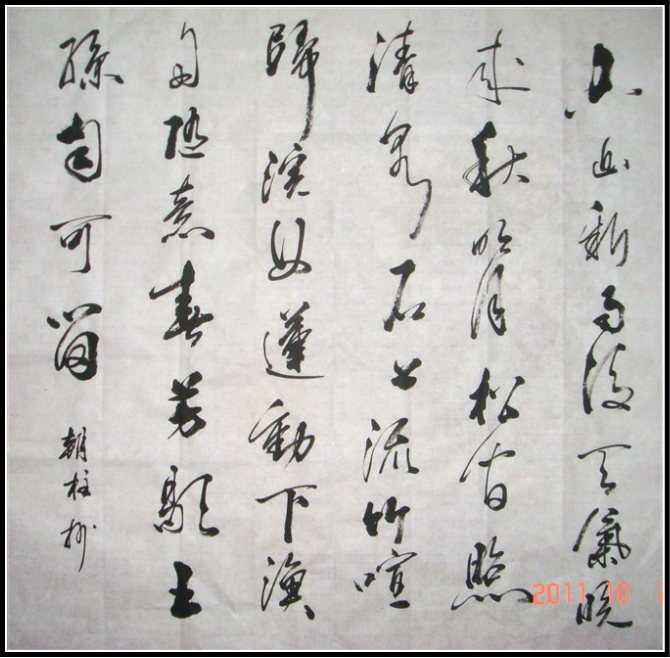 空山新雨後天氣晚
來秋明月松間照
清泉石上流竹喧
歸浣女蓮動下漁
舟隨意春芳歇王
孫自可留 朝柱
2011 10